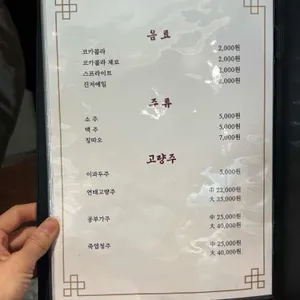 음료
코카콜라 2,000원
코카콜라 제로 2,000원
스프라이트 2,000원
진저에일 2,000원
주류
소 주 5,000원
맥 주 5,000원
칭따오 7,000원
고량주
이과두주 5,000원
연태고량주 中 22,000원
大 35,000원
공부가주 中 25,000원
大 40,000원
죽엽청주 中 25,000원
大 40,000원